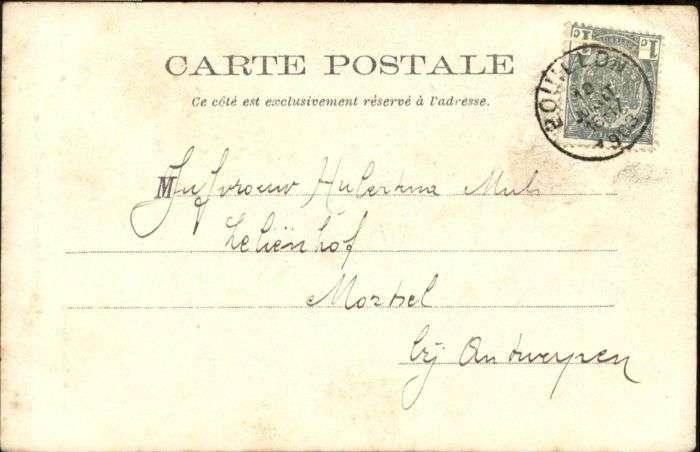 CARTE POSTALE
Ce côté est exclusivement réservé à l'adresse.
1c 1c
BOUILLON
1903
M
Juffrouw Hubertina Muls
Leliënhof
Mortsel
bij Antwerpen